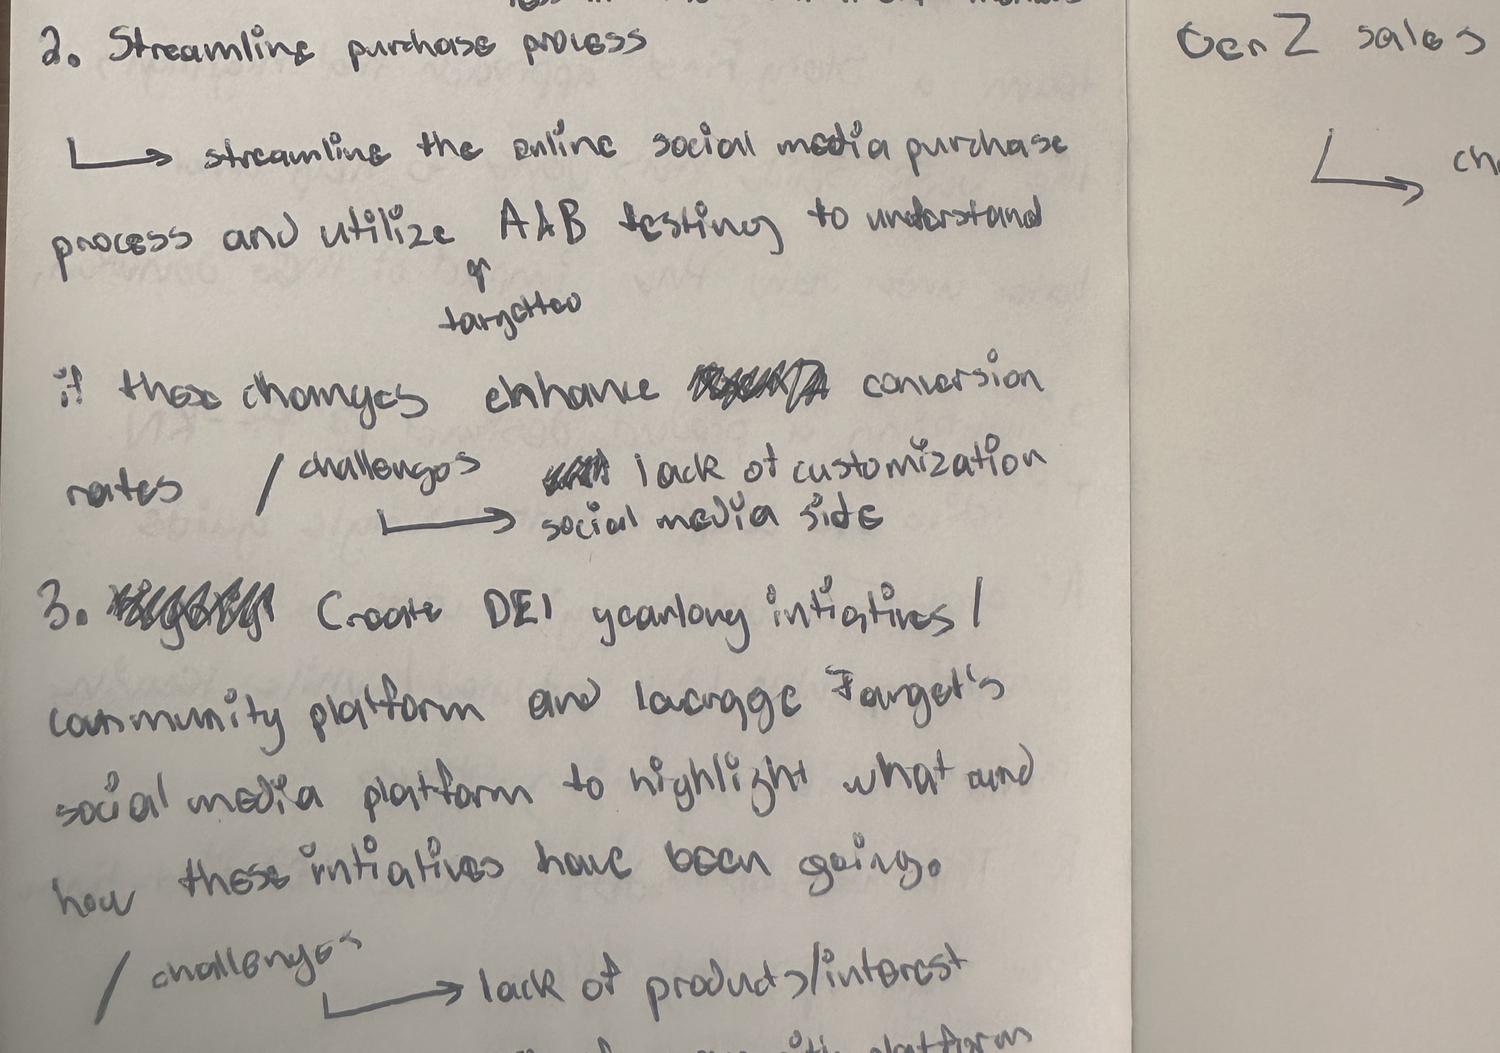 2. Streamline purchase process
↳ streamline the online social media purchase
process and utilize A&B testing to understand
↑
targetted
if these changes enhance conversion
rates / challenges
↳ lack of customization
social media side
3. Create DEI yearlong intiatives /
community platform and laverage Target's
social media platform to highlight what and
how these intiatives have been going.
/ challenges
↳ lack of products/interest
platform
Gen Z sales
↳